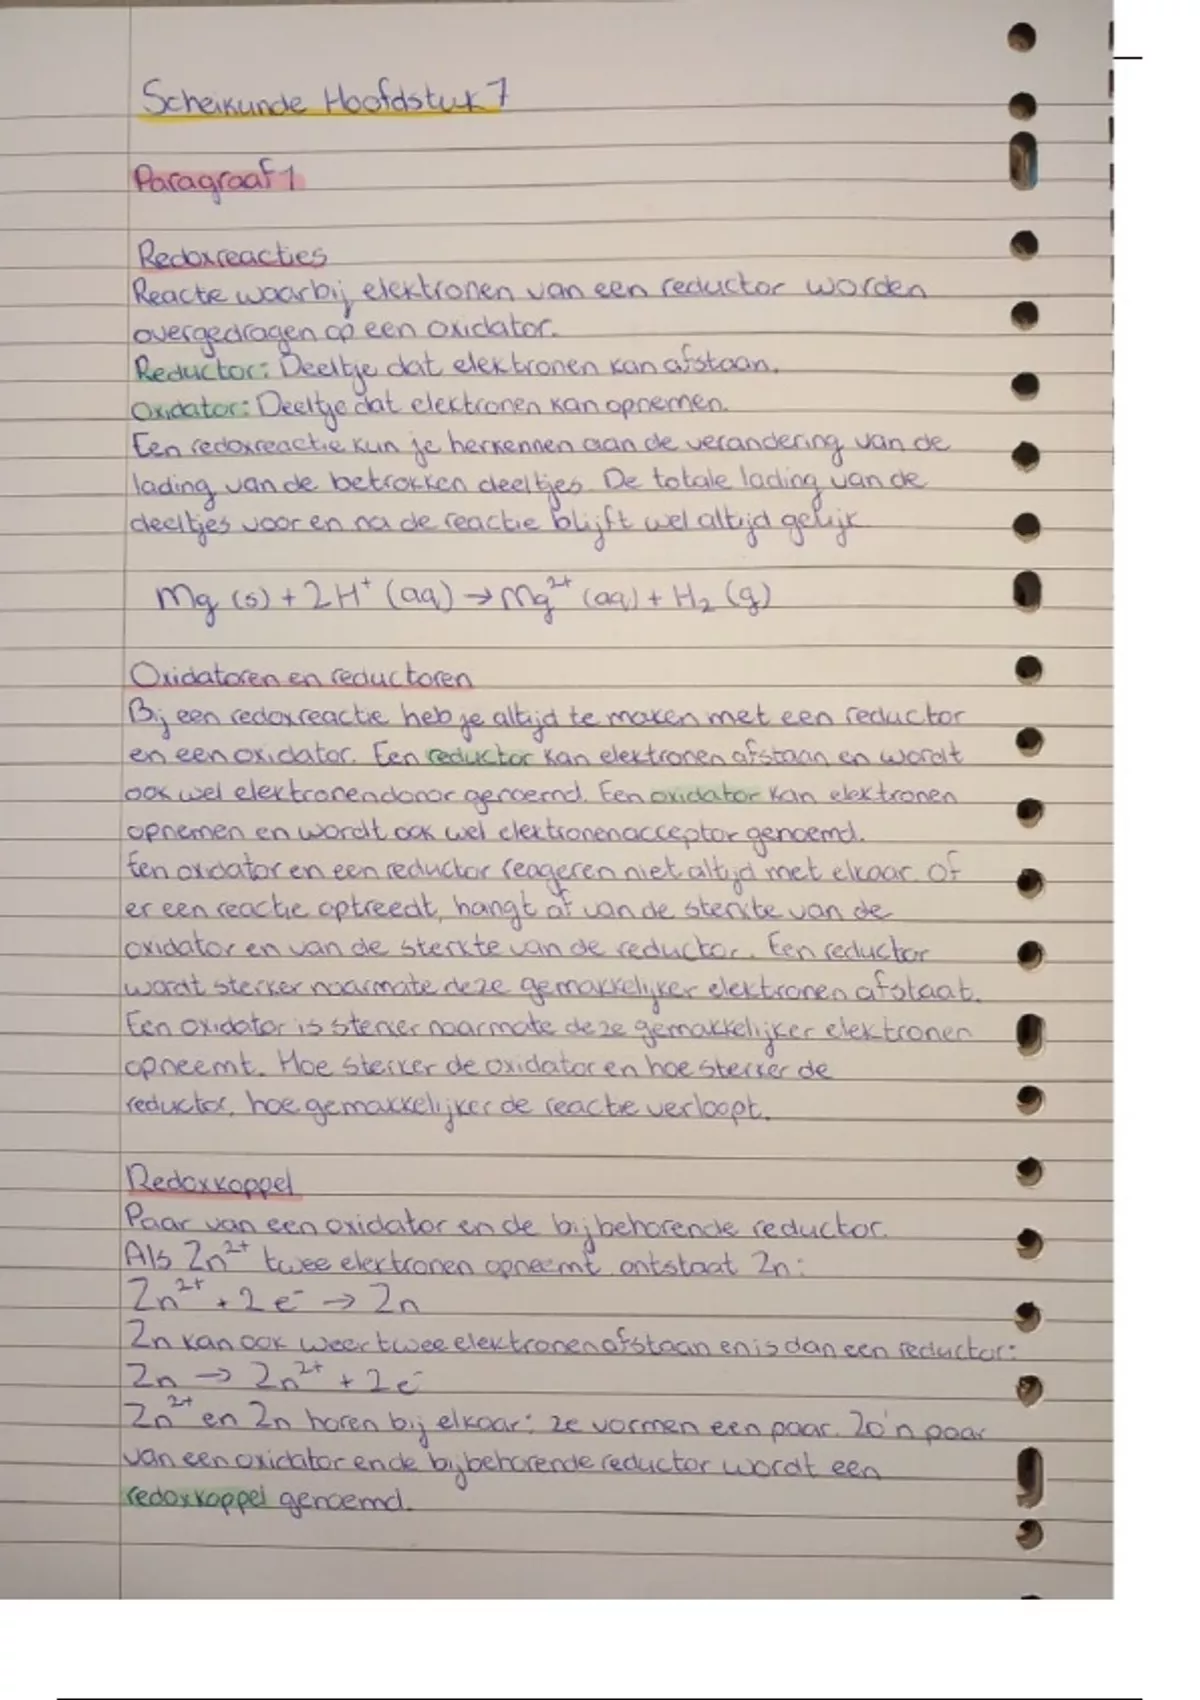 Scheikunde Hoofdstuk 7
Paragraaf 1
Redoxreacties
Reactie waarbij elektronen van een reductor worden
overgedragen op een oxidator.
Reductor: Deeltje dat elektronen kan afstaan.
Oxidator: Deeltje dat elektronen kan opnemen.
Een redoxreactie kun je herkennen aan de verandering van de
lading van de betrokken deeltjes. De totale lading van de
deeltjes voor en na de reactie blijft wel altijd gelijk.
Mg (s) + 2H⁺ (aq) → Mg²⁺ (aq) + H₂ (g)
Oxidatoren en reductoren
Bij een redoxreactie heb je altijd te maken met een reductor
en een oxidator. Een reductor kan elektronen afstaan en wordt
ook wel elektronendonor genoemd. Een oxidator kan elektronen
opnemen en wordt ook wel elektronenacceptor genoemd.
Een oxidator en een reductor reageren niet altijd met elkaar. Of
er een reactie optreedt, hangt af van de sterkte van de
oxidator en van de sterkte van de reductor. Een reductor
wordt sterker naarmate deze gemakkelijker elektronen afstaat.
Een oxidator is sterker naarmate deze gemakkelijker elektronen
opneemt. Hoe sterker de oxidator en hoe sterker de
reductor, hoe gemakkelijker de reactie verloopt.
Redoxkoppel
Paar van een oxidator en de bijbehorende reductor.
Als Zn²⁺ twee elektronen opneemt ontstaat Zn:
Zn²⁺ + 2e⁻ → Zn
Zn kan ook weer twee elektronen afstaan en is dan een reductor:
Zn → Zn²⁺ + 2e⁻
Zn²⁺ en Zn horen bij elkaar: ze vormen een paar. Zo'n paar
van een oxidator en de bijbehorende reductor wordt een
redoxkoppel genoemd.